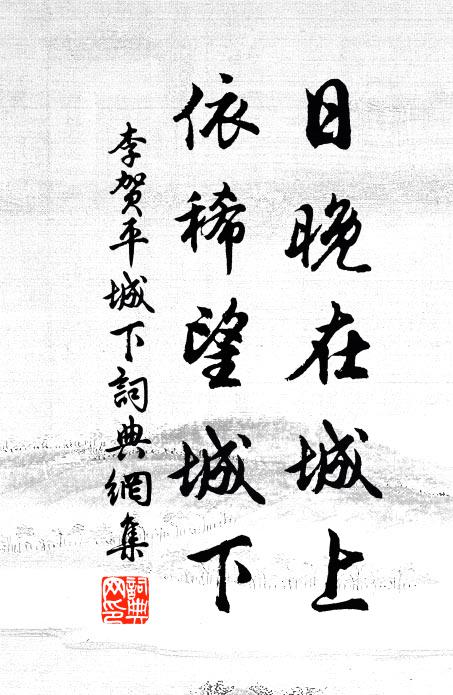 日晚在城上
依稀望城下
李贺平城下詞典網集
詞典